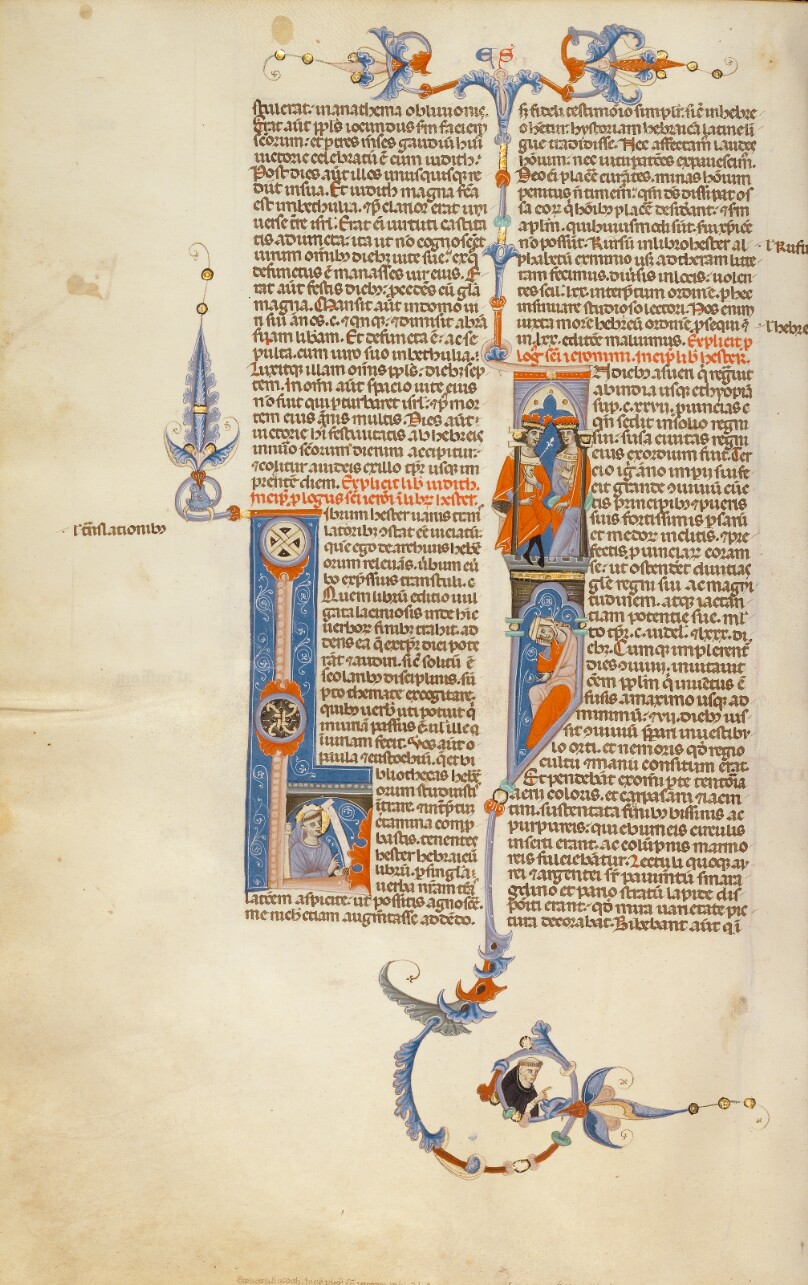 E S
stulerat. in anathema obliuionis.
Erat aut ppls iocundus sm faciem
scorum. et p tres mses gaudiu hui
uictorie celebratu e cum iudith.
Post dies aut illos unusquisq re
diit in sua. Et iudith magna fca
est in bethulia. et p clarior erat uni
uerse tre isrl. Erat eni uirtuti casti
tis adiuncta. ita ut no cognosceret
uirum omib dieb uite sue. ex q
defunctus e manasses uir eius. E
rat aut festis dieb. pcedes cu gla
magna. Mansit aut in domo ui
ri sui anos. c. q qnq. et dimisit abra
suam libam. Et defuncta e. ac se
pulta cum uiro suo in bethulia.
Luxitq illam omis ppls. dieb sep
tem. In omi aut spacio uite eius
no fuit qui p turbaret isrl. et p mor
tem eius anis multis. Dies aut
uictorie hi festiuitatis ab hebreis
in nuo scorum dierum accipitur.
et colitur a iudeis ex illo tpr usq in
presente diem. Explicit lib iudith.
Incip plogus sci ieroi i libr hester.
Librum hester uariis trans
latorib ostat ee uiciatu.
que ego de archiuis hebre
orum releuans. ubum e u
bo expssius transtuli.
Quem libru editio uul
gata laciniosis inde hic
uerbor sinib trahit. ad
dens ea q ex tpr dici pote
rat et audiri. sic solitu e
scolarib disciplinis. su
pto themate excogitare.
quib uerb uti potuit q
iniuria passus e. uel ille q
iniuriam fecit. Vos aut o
paula et eustochiu. qet bi
bliothecas hebre
orum studuistis
itrare. et intptu
ctamina comp
bastis. tenentes
hester hebraicu
libru. p singla
uerba nram trs
latoem aspicite. ut possitis agnosce.
me nich etiam augmtasse addedo.
s fideli testimoio simplr. sic in hebre
o hetur. hystoriam hebraica latine li
gue tradidisse. Nec affectam laudes
hoium. nec uituparoes expauescim.
Deo eni place cuprates. minas hoium
penitus n timem. qm ds dissipat os
sa eor q hoib place desiderant. et sm
aplm. qui huiusmodi sut. serui xpi ee
no possut. Rursu in libro hester al
phabetu ex minio usq ad theram litte
ram fecimus. diusis in locis. uolen
tes sci. lxx. interptum ordine. p hec
insinuare studioso lectori. Nos enim
iuxta more hebreu ordine psequi et
in. lxx. editoe maluimus. Explicit p
log sci ieronimi. Incip lib hester.
In dieb asueri q regnuit
ab india usq ethyopia
sup. c. xxvii. puincias
qn sedit in solio regni
sui. susa ciuitas regni
eius exordium fuit. Ter
cio ig ano imperii sui fe
cit grande conuiuiu cuc
tis principib et pueris
suis fortissimis psaru
et medor inclitis. et pre
fectis puinciar coram
se. ut ostendet diuitias
gle regni sui ac magni
tudinem. atq iactan
tiam potentie sue. ml
to tpr. c. uidel. et lxxx. di
eb. Cumq implerent
dies conuiuii. inuitauit
oem pplm q inuetus e
susis a maximo usq ad
minimu. et vii. dieb ius
sit conuiuiu ppari in uestibu
lo orti. et nemoris qd regio
cultu et manu consitum erat.
Et pendebat ex omi pte tentoria
aerii coloris. et carpasini et iacin
tini. sustentata funib bissinis ac
purpureis. qui eburneis circulis
inserti erant. ac columpnis marmo
reis fulciebatur. Lectuli quoq au
rei et argentei sr pauimtu smara
gdino et pario stratu lapide dis
positi erant. qd mira uarietate pic
tura decorabat. Bibebant aut qi
l translationib
l Rufu
l hebre